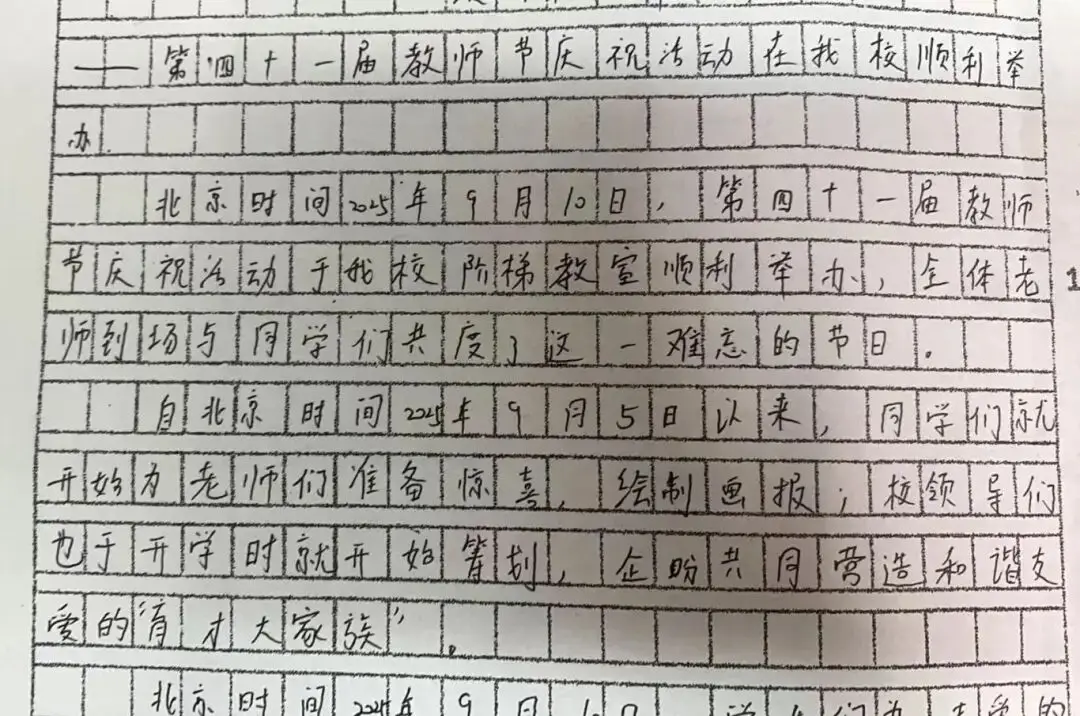 ——第四十一届教师节庆祝活动在我校顺利举
办
北京时间2025年9月10日，第四十一届教师
节庆祝活动于我校阶梯教室顺利举办，全体老
师到场与同学们共度了这一难忘的节日。
自北京时间2025年9月5日以来，同学们就
开始为老师们准备惊喜，绘制画报；校领导们
也于开学时就开始筹划，企盼共同营造和谐友
爱的“育才大家族”。
北京时间2025年9月10日